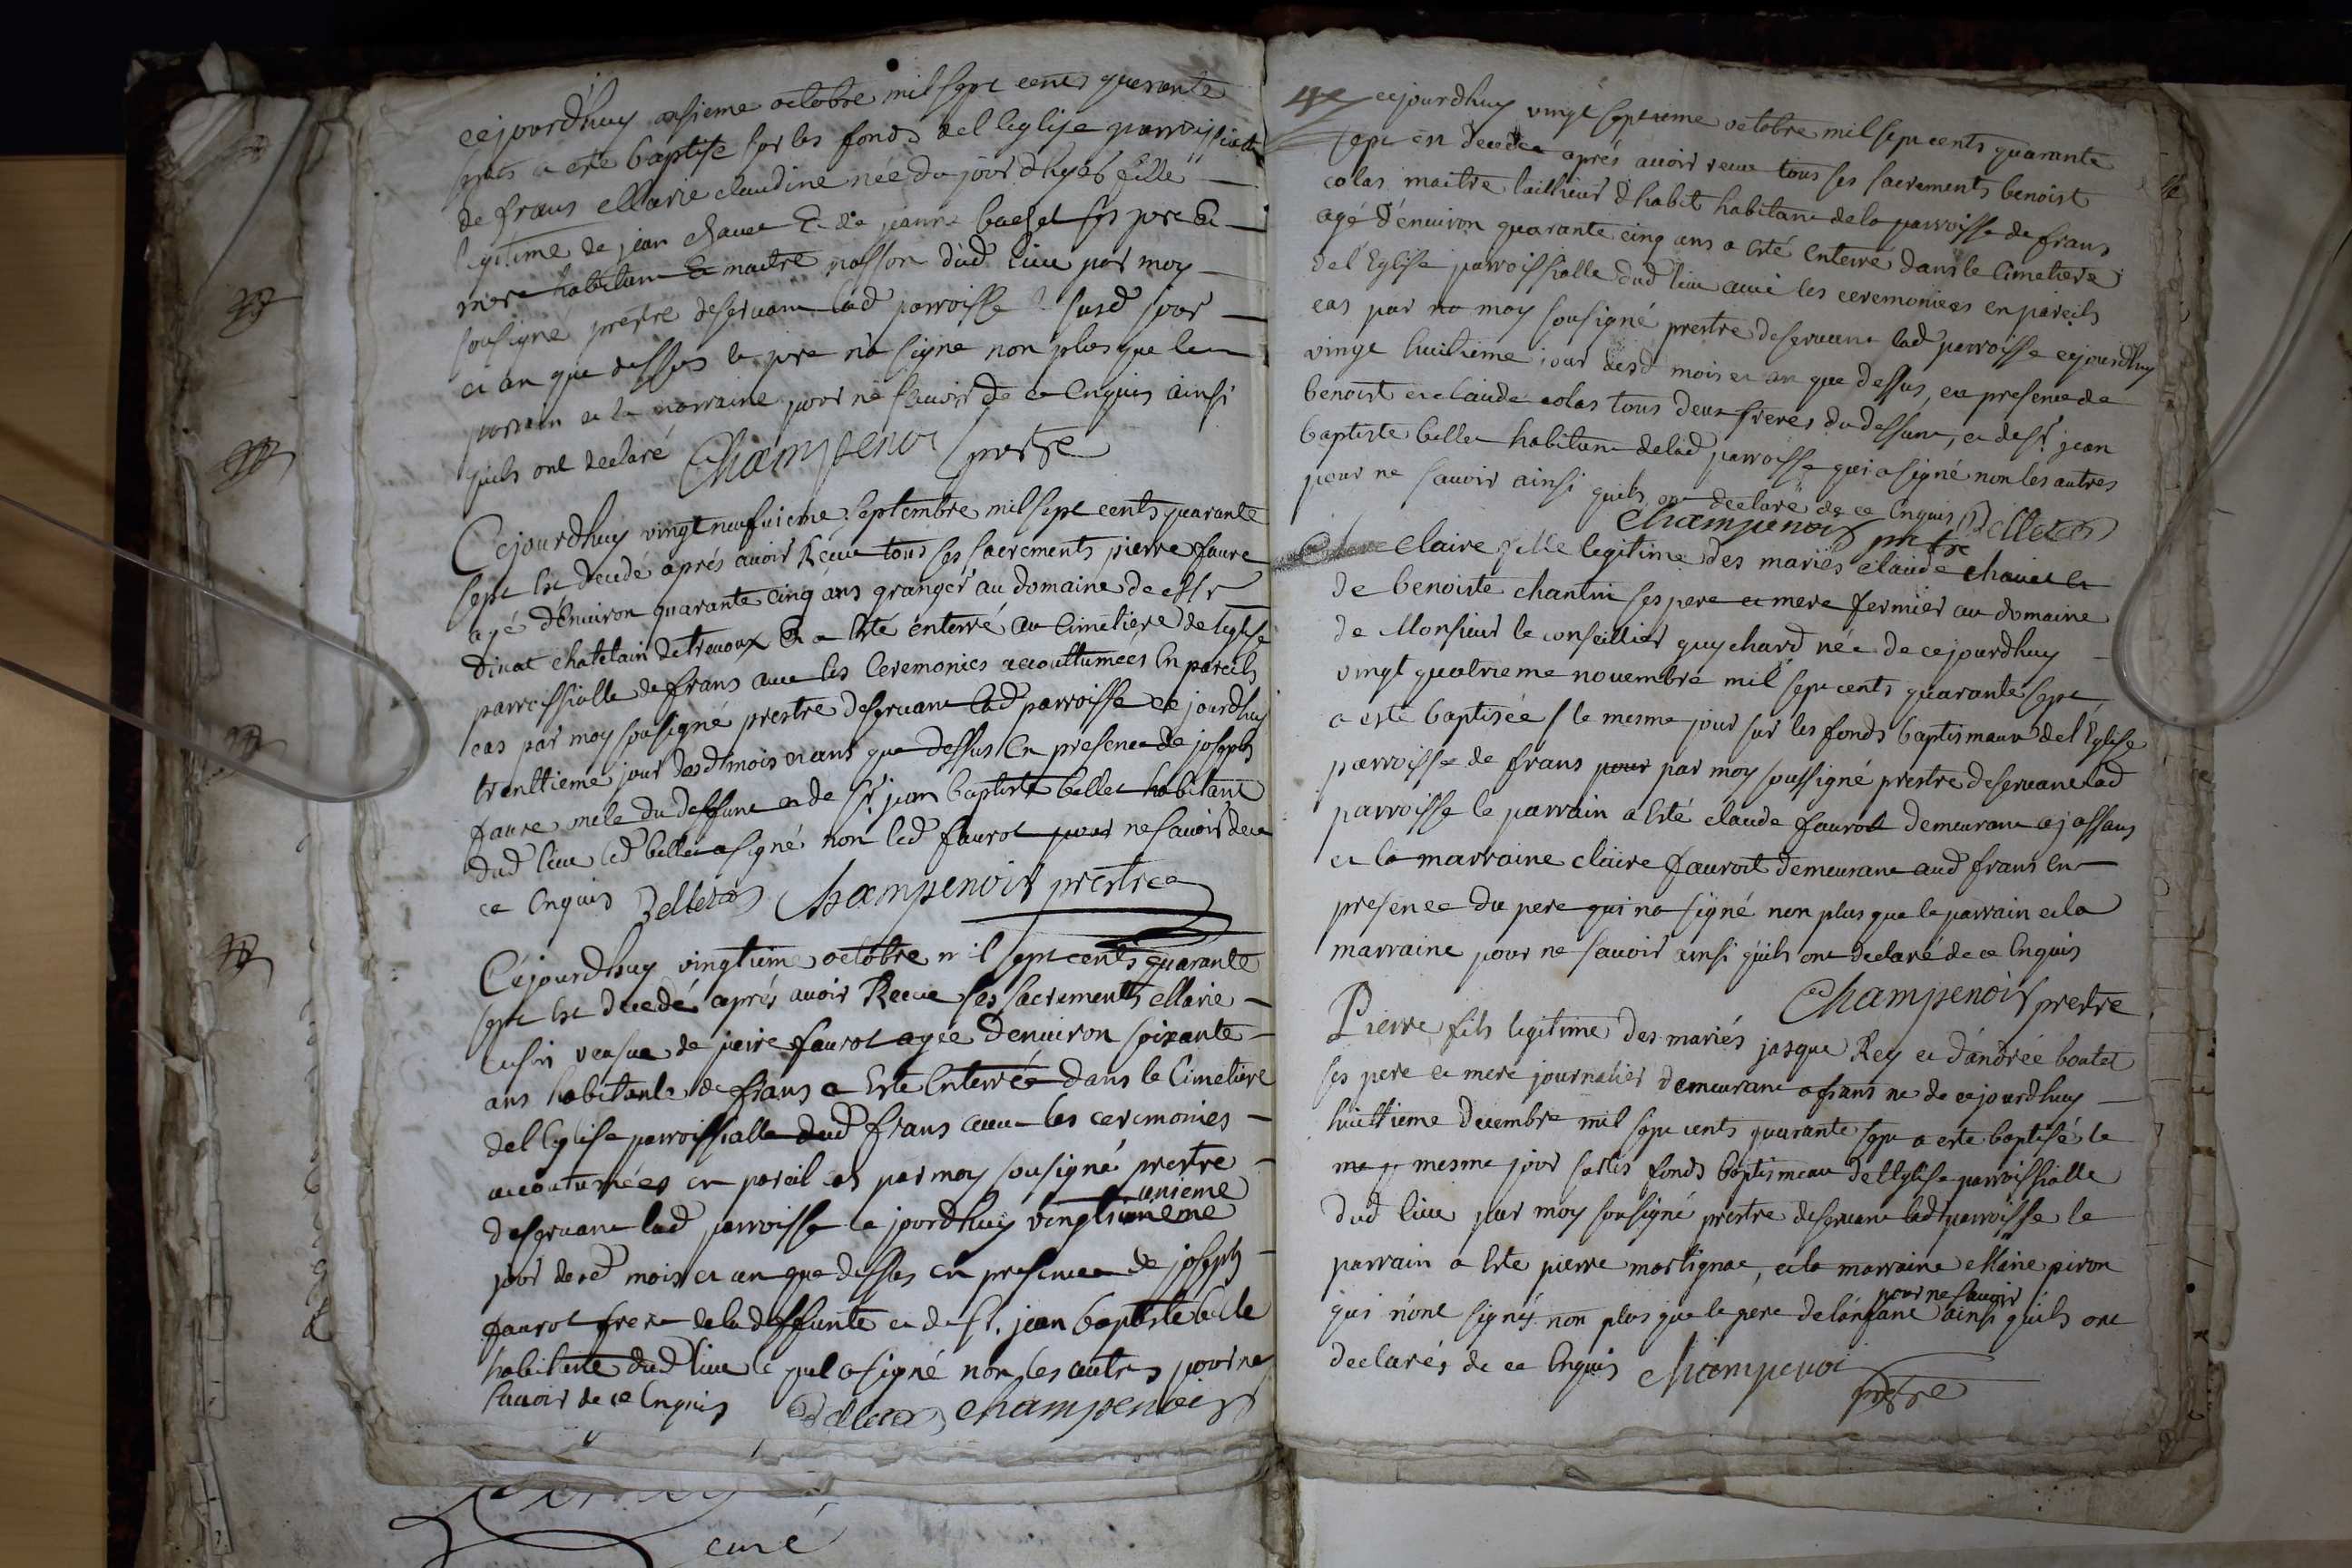 cejourdhuy onsieme octobre mil sept cents quarante
sept a esté baptisé sur les fonds del leglise parroissialle
de frans Marie claudine née du jourdhyer fille
legitime de jean chavet & de jeanne bachet ses pere &
mere habitant & maitre masson dud lieu par moy
sousigné prestre deservant lad parroisse susd jour
et an que dessus le pere na signe non plus que le
parrain et la marraine pour ne scavoir de ce Enquis ainsi
quils ont declaré Champenois prestre
Cejourdhuy vingt neufuieme septembre mil sept cents quarante
sept Est decedé aprés avoir Receu tous ses sacrements pierre faure
agé dEnviron quarante cinq ans granger au domaine de Mr
Dinat chatelain de trevoux Et a Esté enterré au Cimetiere de leglise
parroissialle de frans avec les Ceremonies accoultumees En pareils
cas par moy sousigné prestre deservant lad parroisse cejourdhuy
trenttieme jour desd mois et ans que dessus En presence de joseph
faure oncle du deffunt et de Sr jean baptiste bellet habitant
dud lieu led bellet a signé non led faurot pour ne scavoir de
ce Enquis Belleton Champenois prestre
Cejourdhuy vingtieme octobre mil sept cents quarante
sept Est decedé aprés avoir Receu ses sacrements Marie
veufue de peire faurot agée Denviron soixante
ans habitante de frans a Esté Enterrée dans le Cimetiere
del Eglise parroissialle dud frans avec les ceremonies
accoutumées en pareil cas par moy sousigné prestre
unieme
deservant lad parroisse ce jourdhuy vingtunieme
jour desd mois et an que dessus en presence de joseph
faurot frere de la deffunte et de Sr. jean baptiste belle
habitant dud lieu le quel a signé non les autres pour ne
scavoir de ce Enquis Belleton Champenois
cejourdhuy vingt septieme octobre mil sept cents quarante
sept est decedee aprés avoir receu tous ses sacrements benoist
colas maitre taillieur dhabit habitant de la parroisse de frans
agé dénviron quarante cinq ans a Esté Enterré dans le Cimetiere
del Eglise parroissialle dud lieu avec les ceremoniees en pareils
cas par no moy sousigné prestre deservant lad parroisse cejourdhuy
vingt huitieme jour desd mois et an que dessus, en presence de
benoist et claude colas tous deux freres du deffunt, et de Sr jean
baptiste bellet habitant delad parroisse qui a signé non les autres
pour ne scavoir ainsi quils ont declaré de ce Enquis Belleton
Champenois prestre
Claire fille legitime des mariés claude chavet et
de benoiste chantin ses pere et mere fermier au domaine
de Monsieur le conseillier guychard née de cejourdhuy
vingt quatrieme novembre mil sept cents quarante sept
a esté baptisée le mesme jour sur les fonds baptismaux del Eglise
parroisse de frans pour par moy soussigné prestre deservant lad
parroisse le parrain a Esté claude faurot demeurant a jassans
et la marraine claire fauroit demeurant aud frans En
presence du pere qui na signé non plus que le parrain et la
marraine pour ne scavoir ainsi quils ont declaré de ce Enquis
Champenois prestre
Pierre fils legitime des mariés jasque Rey et d'andrée boutet
ses pere et mere journalier demeurant a frans ne de cejourdhuy
huittieme decembre mil sept cents quarante sept a esté baptisé le
mesme jour sur les fonds baptismeau del Eglise parroissialle
dud lieu par moy sousigné prestre deservant lad parroisse le
parrain a Esté pierre martignac, et la marraine Marie piron
pour ne scavoir
qui n'ont signés non plus que le pere de lénfant ainsi quils ont
declarés de ce Enquis Champenoi
prestre
curé